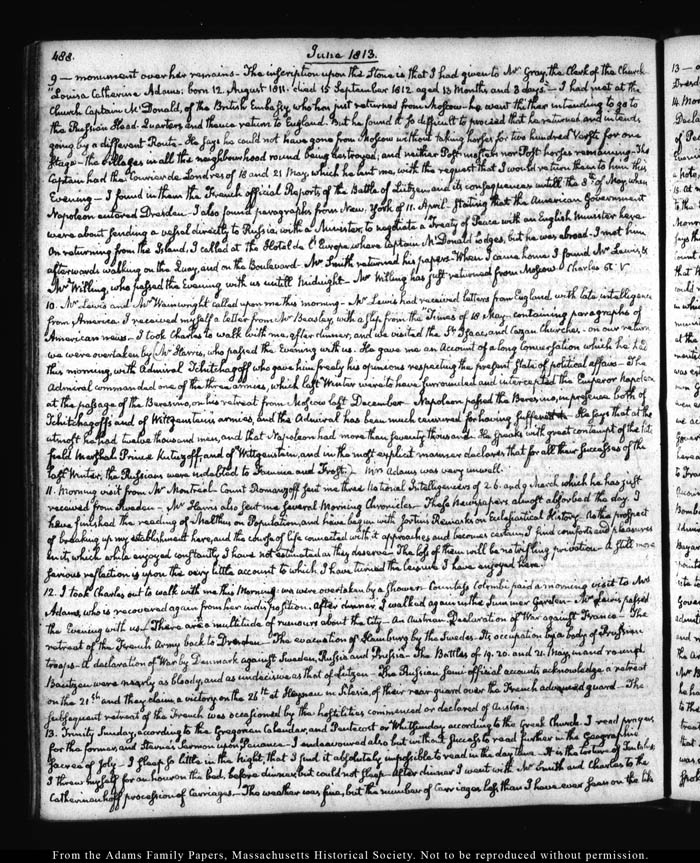 488.
June 1813.
9 — monument over her remains - The inscription upon the Stone is that I had given to Mr Gray, the Clerk of the Church
"Louisa Catherine Adams: born 12. August 1811. died 15 September 1812 aged 13 Months and 3 days." - I had met at the
Church Captain McDonald, of the British Embassy, who has just returned from Moscow - he went thither intending to go to
the Russian Head-Quarters and thence return to England. But he found it so difficult to proceed that he returned and intends
going by a different Route. He says he could not have gone from Moscow without taking horses for two hundred Versts for one
Stage - the villages in all the neighbourhood round being destroyed, and neither Post master nor Post horses remaining - The
Captain had the Courier de Londres of 18 and 21 May, which he lent me, with the request that I would return them to him this
Evening - I found in them the French official Reports of the Battle of Lutzen and its consequences untill the 8th of May, when
Napoleon entered Dresden - I also found paragraphs from New York of 11. April. stating that the American Government
were about sending a vessel directly to Russia, with a Minister, to negotiate a Treaty of Peace with an English Minister here
On returning from the Island, I called at the Hotel de l'Europe where Captain McDonald lodges, but he was abroad. I met him
afterwards walking on the Quay, and on the Boulevard - Mr Smith returned his papers. When I came home I found Mr Lewis, &
Mr Willing, who passed the Evening with us untill Midnight - Mr Willing has just returned from Moscow. Charles
10. Mr Lewis and Mr Wainwright called upon me this morning - Mr Lewis had received letters from England, with late intelligence
from America. I received myself a letter from Mr Beasley, with a slip from the Times of 18 May, containing paragraphs of
American news. - I took Charles to walk with me, after dinner, and we visited the St Isaac, and Cazan Churches - on our return
we were overtaken by Mr Harris, who passed the Evening with us. He gave me an Account of a long Conversation which he had
this morning, with Admiral Tchitchagoff who gave him freely his opinions respecting the present State of political affairs - The
Admiral commanded one of the three armies, which last Winter were to have surrounded and intercepted the Emperor Napoleon
at the passage of the Beresina, on his retreat from Moscow last December. Napoleon passed the Beresina, in presence both of
Tchitchagoff's and of Wittgenstein's armies, and the Admiral has been much censured for having suffered it. He says that at the
utmost he had twelve thousand men, and that Napoleon had more than seventy thousand. He speaks with great contempt of the late
field Marshal Prince Kutuzoff, and of Wittgenstein, and in the most explicit manner declares that for all their successes of the
last Winter, the Russians were indebted to Famine and Frost. - Mrs Adams was very unwell.
11. Morning visit from Mr Montreal - Count Romanzoff sent me three National Intelligencers of 2. 6. and 9 March which he has just
received from Sweden - Mr Harris also sent me several Morning Chronicles. These Newspapers almost absorbed the day. I
have finished the reading of Malthus on Population, and have begun with Jortin's Remarks on Ecclesiastical History. As the prospect
of breaking up my establishment here, and the course of life connected with it approaches and becomes certain, I find comforts and pleasures
in it, which while enjoyed constantly I have not estimated as they deserve - The loss of them will be no trifling privation - A still more
serious reflection is upon the very little account to which I have turned the leisure I have enjoyed here.
12. I took Charles out to walk with me this Morning: we were overtaken by a shower - Countess Colombi paid a morning visit to Mrs
Adams, who is recovered again from her indisposition. After dinner, I walked again in the Summer Garden - Mr Lewis passed
the Evening with us. - There are a multitude of rumours about the City - An Austrian Declaration of War against France - The
retreat of the French Army back to Dresden - The evacuation of Hamburg by the Swedes. Its occupation by a body of Prussian
troops - A declaration of War by Denmark against Sweden, Russia and Prussia - The Battles of 19. 20. and 21. May, in and round
Bautzen were nearly as bloody, and as indecisive as that of Lutzen - The Russian semi-official accounts acknowledge a retreat
on the 21st and they claim a victory on the 26th at Haynau in Silesia, of their rear guard over the French advanced guard - The
subsequent retreat of the French was occasioned by the hostilities commenced or declared of Austria.
13. Trinity Sunday, according to the Gregorian Calendar, and Pentecost or Whitsunday according to the Greek Church. I read prayers
for the former, and Sterne's Sermon upon Penance - I endeavoured also but without success to read further in the Geographia
Sacra of - I sleep so little in the night, that I find it absolutely impossible to read in the day time. It is the torture of Tantalus
I threw myself for an hour on the bed, before dinner, but could not sleep - After dinner I went with Mr Smith and Charles to the
Catherinenhoff procession of Carriages - The weather was fine, but the number of Carriages less than I have ever seen on the like
From the Adams Family Papers, Massachusetts Historical Society. Not to be reproduced without permission.